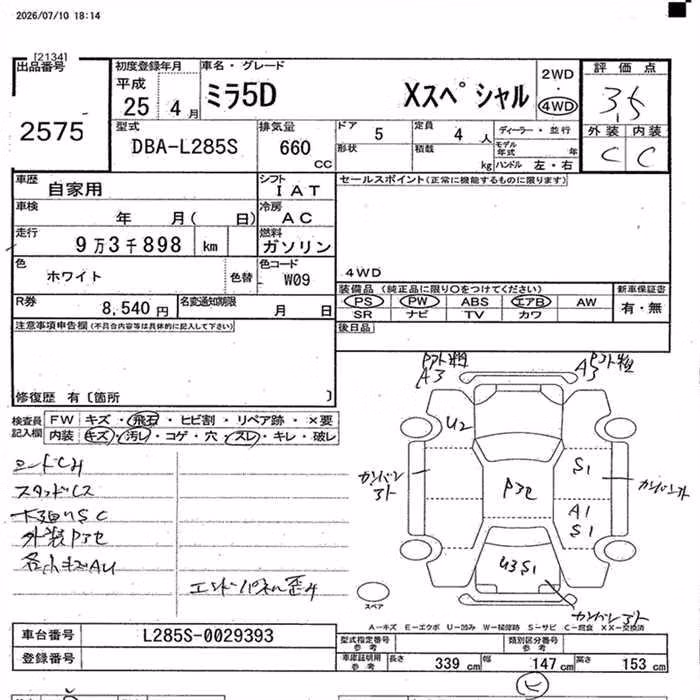 2026/07/10 18:14
[2134]
出品番号
2575
初度登録年月
平成
25 4月
車名・グレード
ミラ5D Xスペシャル
2WD
・
4WD
評価点
3.5
外装 内装
C C
型式
DBA-L285S
排気量
660
CC
ドア 5
定員 4 人
形状
積載 kg
ディーラー・並行
モデル年式 年
ハンドル 左・右
車歴
自家用
シフト
IAT
車検
年 月( 日)
冷房
AC
走行
9万3千898 km
燃料
ガソリン
色
ホワイト
色替
色コード
W09
R券
8,540円
名変通知期限
月 日
セールスポイント(正常に機能するものに限ります)
4WD
装備品(純正品に限り○をつけてください)
新車保証書
PS PW ABS エアB AW
SR ナビ TV カワ
有・無
後日品
注意事項申告欄(不具合内容等は具体的に記入して下さい)
修復歴 有〔箇所 〕
検査員
記入欄
FW キズ・飛石・ヒビ割・リペア跡・×要
内装 キズ・汚レ・コゲ・穴・スレ・キレ・破レ
スタッドレス
下廻りSC
外装Pアセ
各小キズAU
エンドパネル歪み
A3
A3
U2
S1
Pアセ
A1
S1
U3S1
スペア
A-キズ E-エクボ U-凹み W-補修跡 S-サビ C-腐食 XX-交換済
車台番号
L285S-0029393
登録番号
型式指定番号
参考
類別区分番号
参考
車庫証明用
参考
長さ 339 cm 幅 147 cm 高さ 153 cm